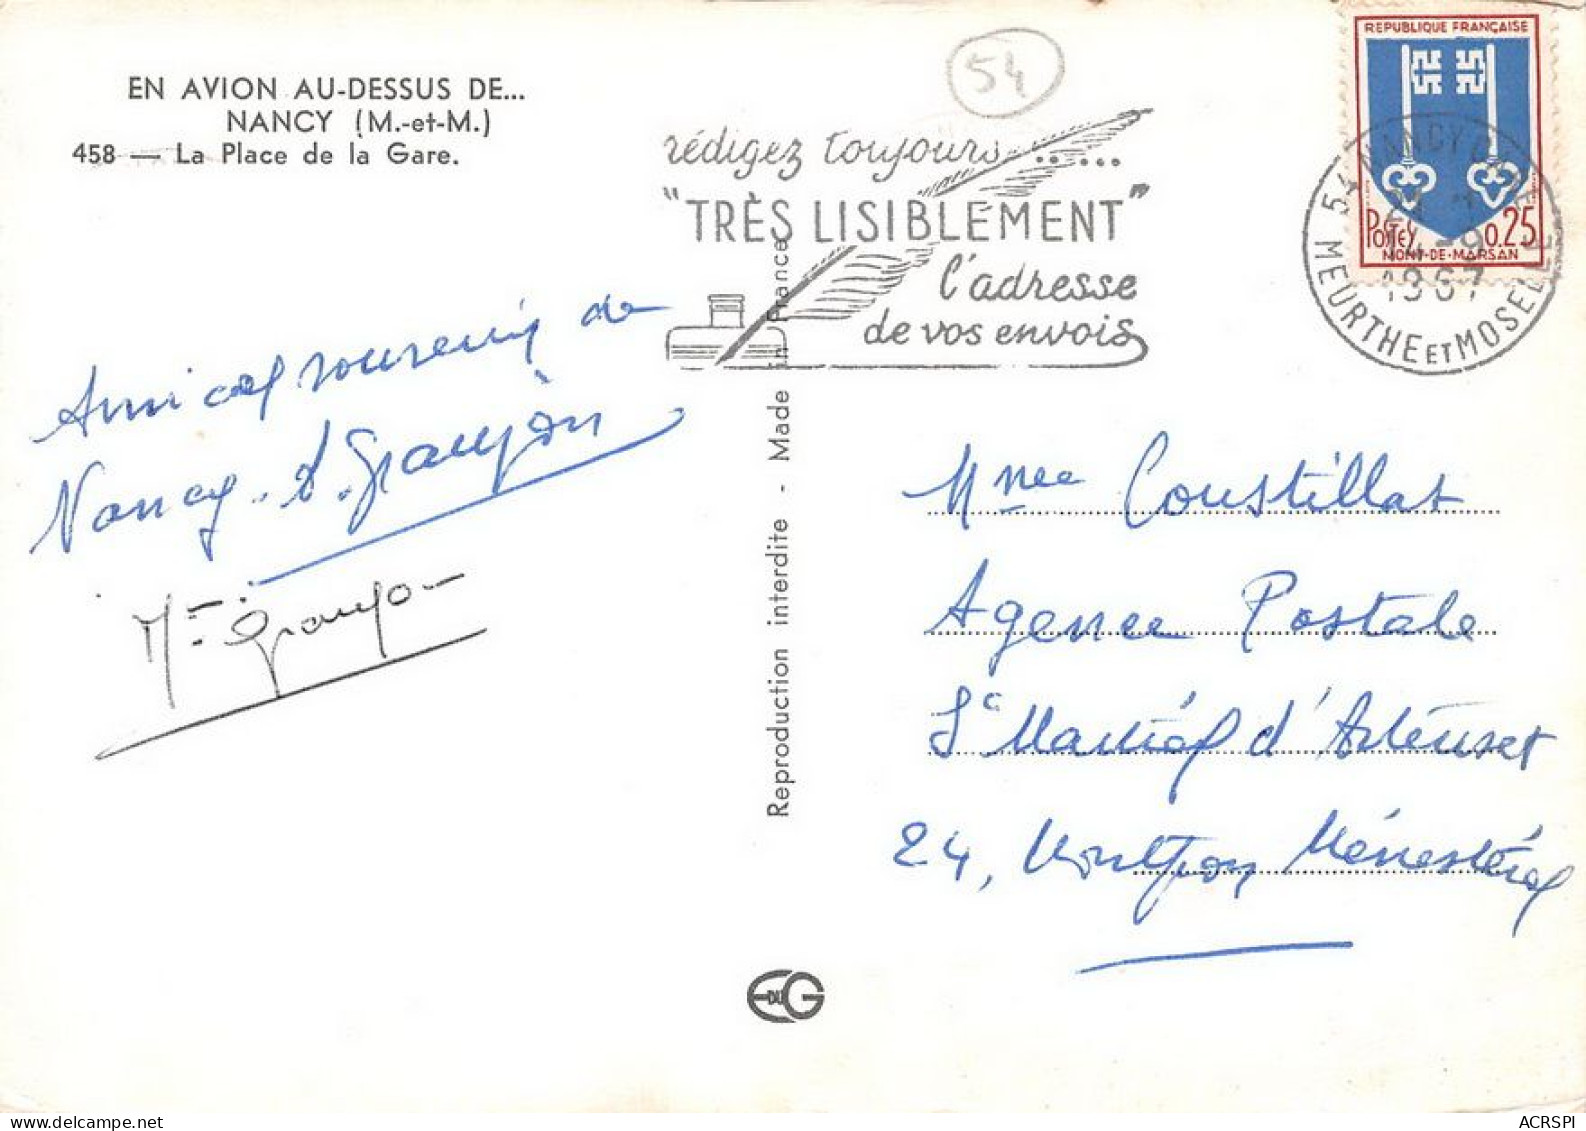 EN AVION AU-DESSUS DE...
NANCY (M.-et-M.)
458 — La Place de la Gare.
54
rédigez toujours ......
"TRÈS LISIBLEMENT"
l'adresse
de vos envois
REPUBLIQUE FRANÇAISE
POSTES 0.25
MONT-DE-MARSAN
54 NANCY GARE
1967
MEURTHE ET MOSELLE
Amical souvenir de
Nancy. S. Granjon
M. Granjon
Reproduction interdite - Made in France
Mme Coustillas
Agence Postale
St Martial d'Artenset
24, Montpon Ménestérol
E DU G
ACRSPI